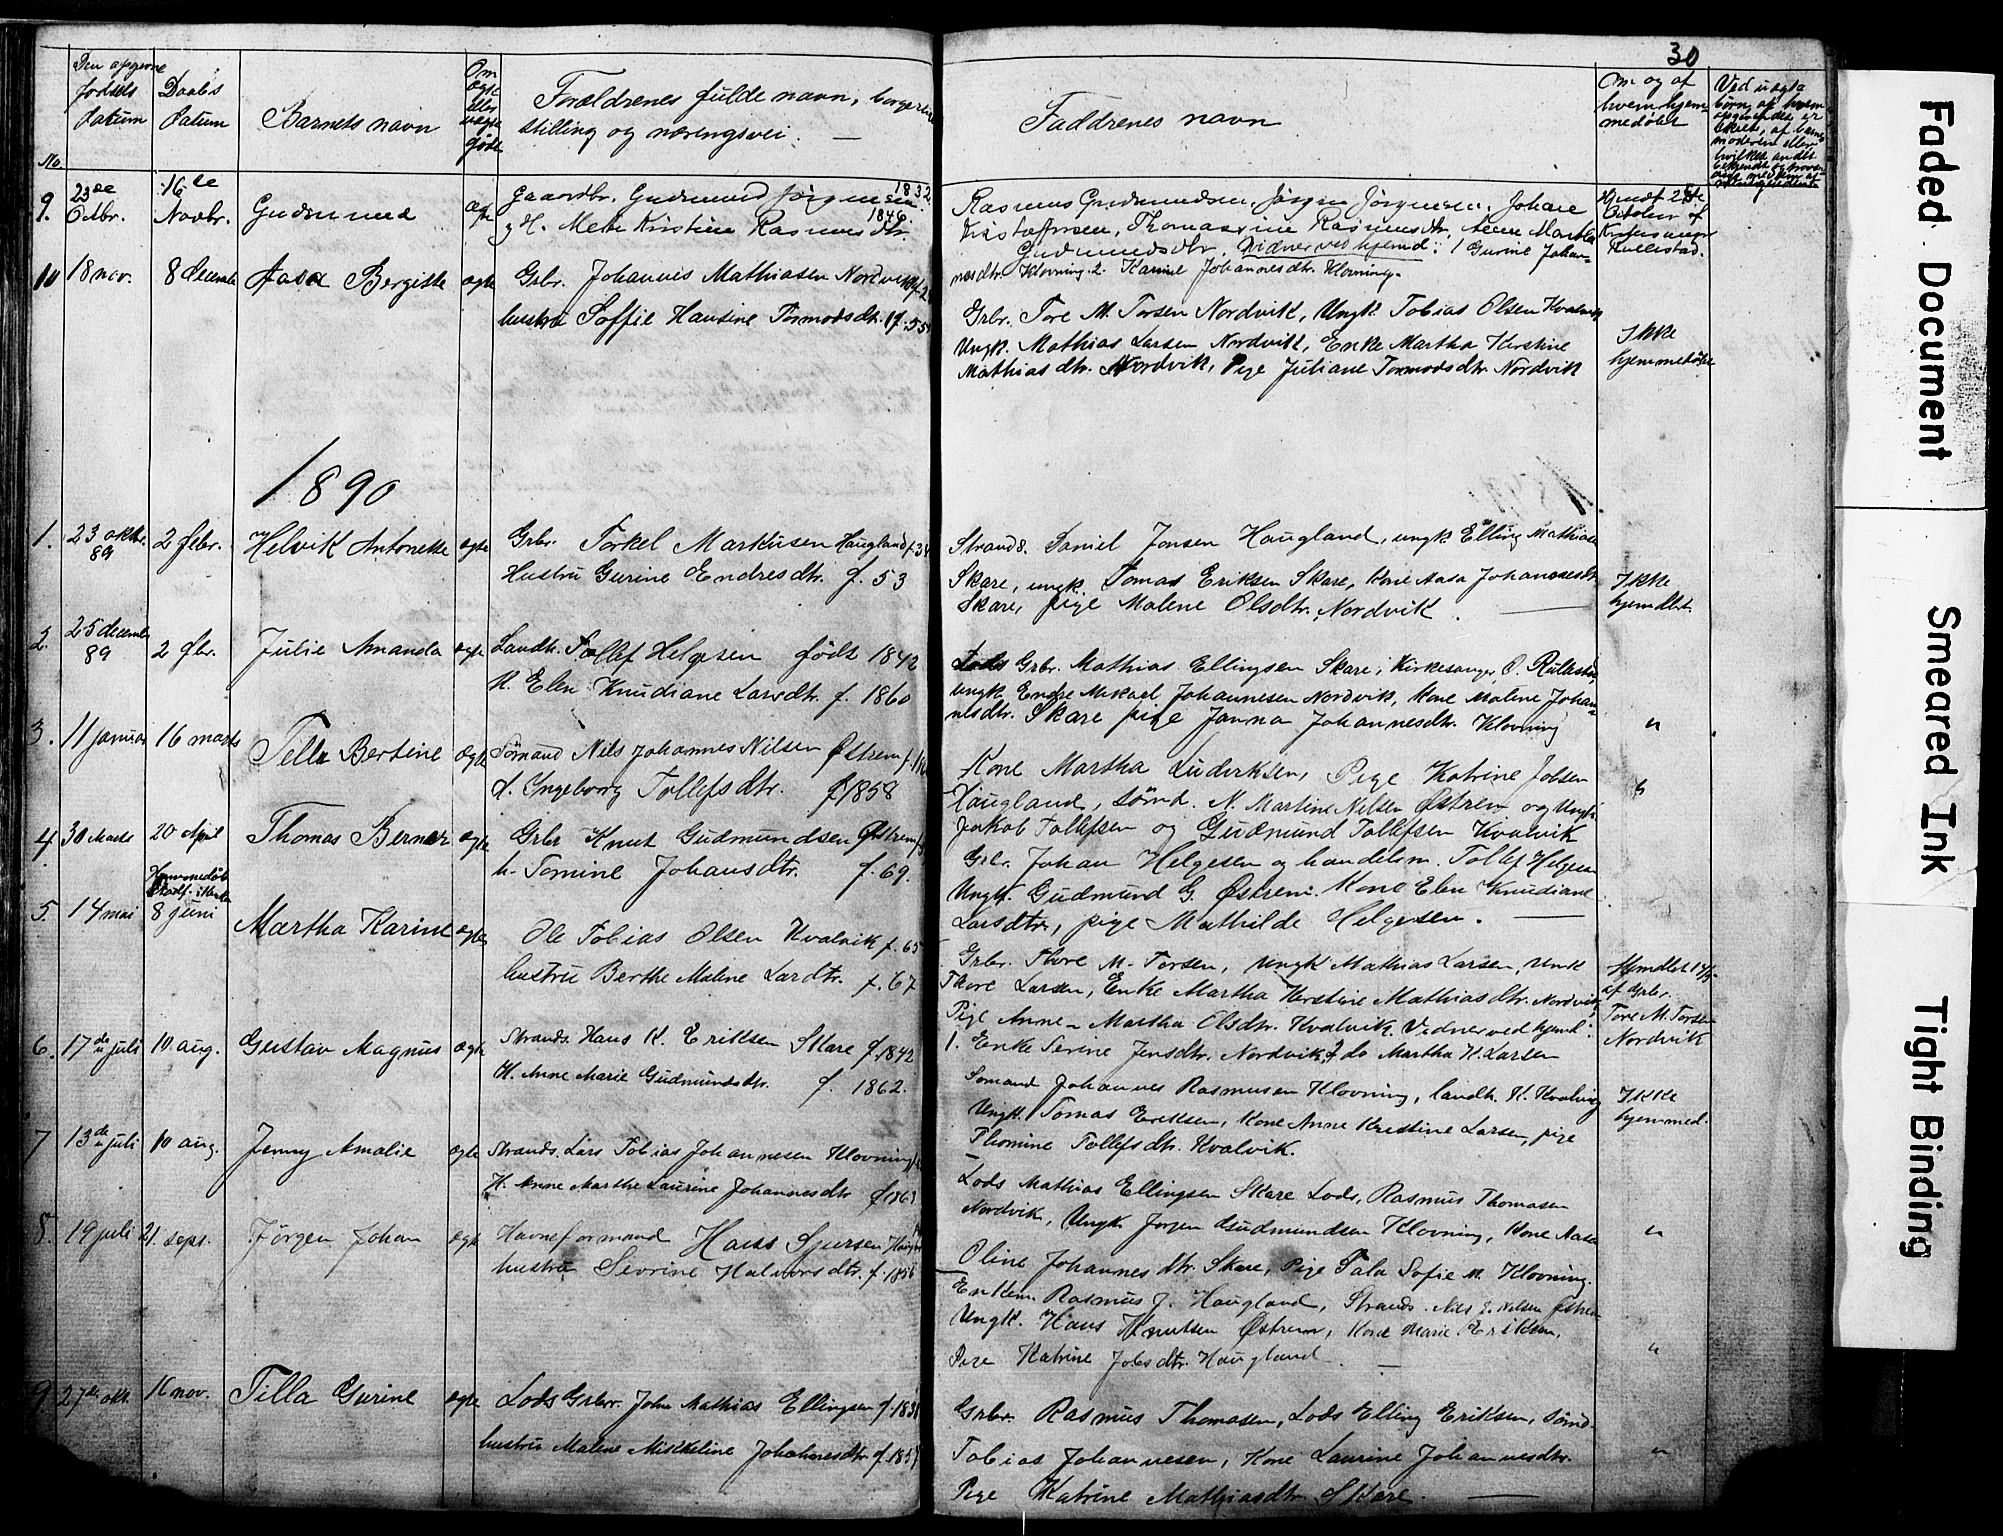 30
Den opgivne
fødsels
datum
Daabs
datum
Barnets navn
Om
ægte
eller
uægte
født
Forældrenes fulde navn, borgerlige
stilling og næringsvei.
Faddrenes navn
Om og af
hvem hjem-
medøbt
Ved uægte
børn, af hvem
No.
9. 23de Octbr. 16de Novbr. Gudmund ægte Gaardbr. Gudmund Jørgensen 1832
g H. Mette Kristine Rasmusdtr. 1846
Rasmus Gudmundsen, Jørgen Jørgensen, Johan
Kristoffersen, Thomasine Rasmusdtr, Anne Martha
Gudmundsdtr, Vidner ved hjemd: 1 Gurine Johan-
nesdtr. Klovning 2. Karine Johannesdtr. Klovning.
Hjmdt 28de
October af
Kirkesanger
Rullestad.
10 18 nov. 8 decembr Aasa Bergitte ægte Grbr. Johannes Mathiasen Nordvik
hustru Soffie Hansine Tormodsdtr. f. 55
Grbr. Tore M. Torsen Nordvik, Ungk. Tobias Olsen Kvalvik
Ungk. Mathias Larsen Nordvik, Enke Martha Kerstine
Mathiasdtr. Nordvik, Pige Juliane Tormodsdtr Nordvik
Ikke
hjemmedøbt
1890
1. 23 oktbr. 89 2 febr. Helvik Antonette ægte Grbr. Torkel Markusen Haugland f. 34
Hustru Gurine Endresdtr. f. 53
Strands. Daniel Jonsen Haugland, ungk. Elling Mathiasen
Skare, ungk. Tomas Eriksen Skare, kone Aasa Johannesdtr
Skare, pige Malene Olsdtr. Nordvik.
Ikke
hjemdbt.
2. 25 decembr 89 2 fbr. Julie Amanda ægte Landh. Tollef Helgesen født 1842
K. Elen Knudiane Larsdtr. f. 1860
Grbr. Mathias Ellingsen Skare, Kirkesanger O. Rullestad
ungk. Endre Mikael Johannesen Nordvik, kone Malene Johan-
nesdtr. Skare pige Janna Johannesdtr. Klovning
"
3. 11 januar 16 marts Tella Bertine ægte Sømand Nils Johannes Nilsen Østrem
H. Ingeborg Tollefsdtr. f 1858
Kone Martha Luderksen, Pige Katrine Jobsen
Haugland, sømd. N. Martin Nilsen Østrem og Ungk.
Jakob Tollefsen og Gudmund Tollefsen Kvalvik
"
4 30 Marts 20 April Thomas Berner ægte Grbr Knut Gudmundsen Østrem
h. Tomine Johansdtr. f. 69.
Grbr. Johan Helgesen og handelsm. Tollef Helgesen
Ungk. Gudmund G. Østrem. Kone Elen Knudiane
Larsdtr, pige Mathilde Helgesen.
5. 14 mai Hjemmedøbt Stadf. i Kirken 8 juni Martha Karine ægte Ole Tobias Olsen Kvalvik f. 65
hustru Berthe Malene Larsdtr. f. 67
Grbr. Thore M. Torsen, Ungk Mathias Larsen, Unk
Thore Larsen, Enke Martha Kerstine Mathiasdtr. Nordvik
Pige Anne-Martha Olsdtr. Kvalvik. Vidner ved hjemd.
1. Enke Serine Jensdtr. Nordvik, 2 do Martha K. Larsen
Hjemdbt 14/5
af Grbr.
Tore M. Torsen
Nordvik
6. 17de juli 10 aug. Gustav Magnus ægte Strands. Hans K. Eriksen Skare f. 1842
H. Anne Marie Gudmundsdtr. f. 1862.
Sømand Johannes Rasmusen Klovning, landh. K. Kvalvig
Ungk. Tomas Eriksen, Kone Anne Kristine Larsen, pige
Thomine Tollefsdtr. Kvalvik.
Ikke
hjemmed.
7 13de juli 10 aug. Jenny Amalie ægte Strands. Lars Tobias Johannesen Klovning
H. Anne Marthe Laurine Johannesdtr f 1863
Lods Mathias Ellingsen Skare Lods, Rasmus Thomasen
Nordvik, Ungk Jørgen Gudmundsen Klovning, Kone Aasa
Oline Johannesdtr. Skare, Pige Tala Sofie M. Klovning.
"
8. 19 juli 21. sept. Jørgen Johan ægte Havneformand Hans Sjursen
hustru Sevrine Halvorsdtr. f. 1856
Enkem. Rasmus J. Haugland, Strands. Nils J. Nilsen Østrem
Ungk. Hans Knutsen Østrem, Kone Marie Eriksen,
Pige Katrine Jobsdtr. Haugland.
"
9 27de okt. 16 nov. Tilla Gurine ægte Lods Grbr. John Mathias Ellingsen f. 1838
hustru Malene Mickeline Johannesdtr f. 1857
Grbr. Rasmus Thomasen, Lods Elling Eriksen, sømd.
Tobias Johannesen, Kone Laurine Johannesdtr.
Pige Katrine Mathiasdtr Skare.
"
Faded Document
Smeared Ink
Tight Binding